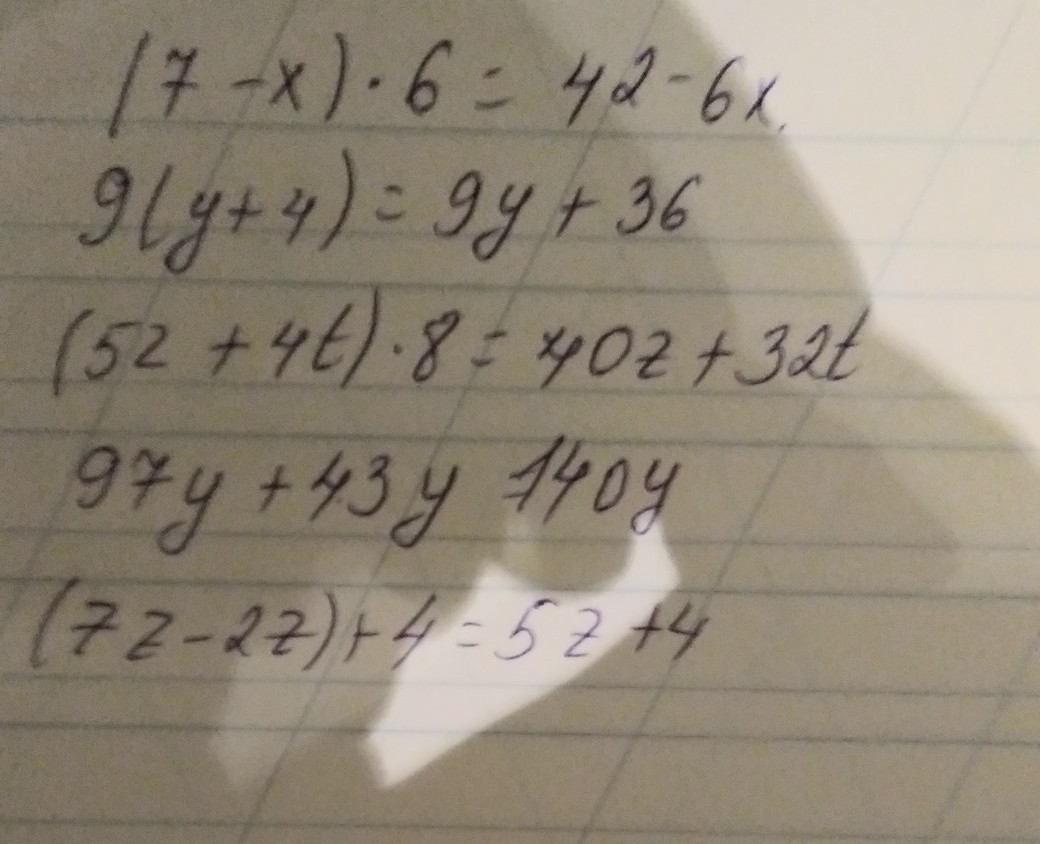 (7 - x) · 6 = 42 - 6x.
9(y + 4) = 9y + 36
(5z + 4t) · 8 = 40z + 32t
97y + 43y = 140y
(7z - 2z) + 4 = 5z + 4